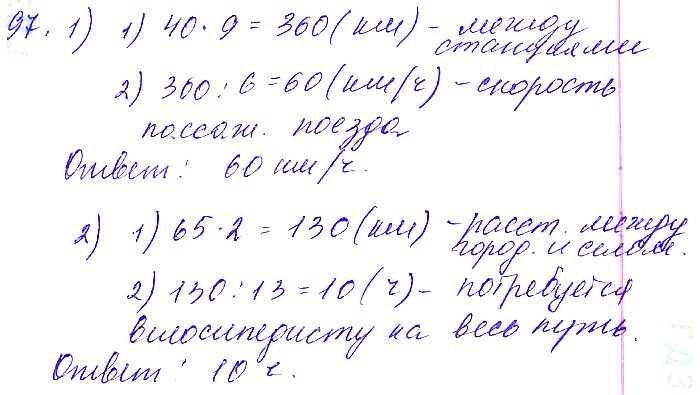 97. 1) 1) 40 · 9 = 360 (км) - между
станциями
2) 360 : 6 = 60 (км/ч) - скорость
пассаж. поезда
Ответ: 60 км/ч.
2) 1) 65 · 2 = 130 (км) - расст. между
город. и селом.
2) 130 : 13 = 10 (ч) - потребуется
велосипедисту на весь путь.
Ответ: 10 ч.